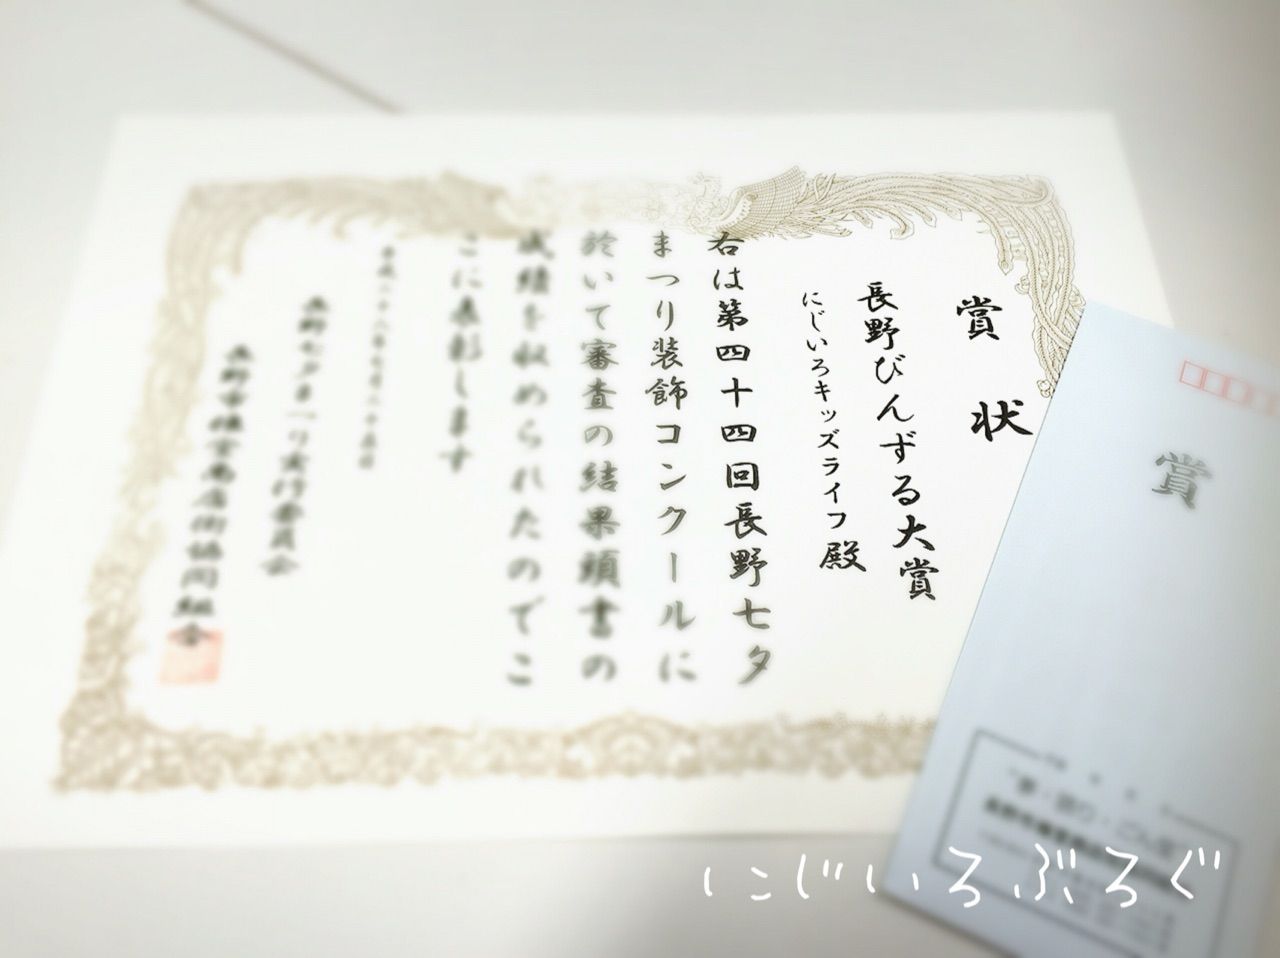 賞状
長野びんずる大賞
にじいろキッズライフ殿
右は第四十四回長野七夕
まつり装飾コンクールに
於いて審査の結果頭書の
成績を収められたのでこ
こに表彰します
平成二十八年七月二十五日
長野七夕まつり実行委員会
長野市権堂商店街協同組合
賞
にじいろぶろぐ